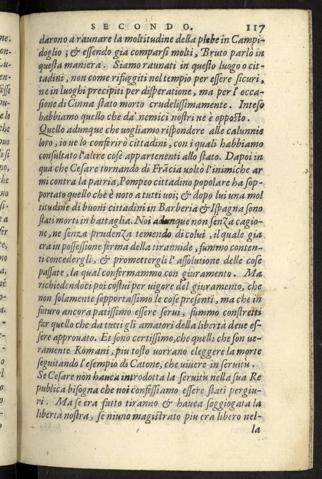 SECONDO. 117
darono a raunare la moltitudine della plebe in Campi-
doglio; & essendo gia comparsi molti, Bruto parlò in
questa maniera. Siamo raunati in questo luogo o cit-
tadini, non come rifuggiti nel tempio per essere sicuri,
ne in luoghi precipiti per disperatione, ma per l'occa
sione di Cinna stato morto crudelissimamente. Inteso
habbiamo quello che da nemici nostri ne è opposto.
Quello adunque che vogliamo rispondere alle calunnie
loro, io ne lo conferirò cittadini, con i quali habbiamo
consultato l'altre cose appartenenti allo stato. Dapoi in
qua che Cesare tornando di Frãcia voltò l'inimiche ar
mi contra la patria, Pompeo cittadino popolare ha sop-
portato quello che è noto a tutti voi; & dopo lui una mol
titudine di buoni cittadini in Barberia & Ispagna sono
stati morti in battaglia. Noi adunque non senza cagio-
ne, ne senza prudenza temendo di colui, il quale gia
era in possessione ferma della tirannide, summo conten-
ti concedergli, & promettergli l'assolutione delle cose
passate, la qual confermammo con giuramento. Ma
richiedendoci poi costui per vigore del giuramento, che
non solamente sopportassimo le cose presenti, ma che in
futuro ancora patissimo essere servi, summo constretti
far quello che da tutti gli amatori della libertà deve es-
sere approvato. Et sono certissimo, che quelli che son ve-
ramente Romani, piu tosto vorrano eleggere la morte
seguitando l'esempio di Catone, che vivere in servitu.
Se Cesare non haueua introdotta la servitu nella sua Re
publica bisogna che noi confessiamo essere stati pergiu-
ri. Ma se era fatto tiranno & haueua soggiogata la
liberta nostra, se niuno magistrato piu era libero nel-
la